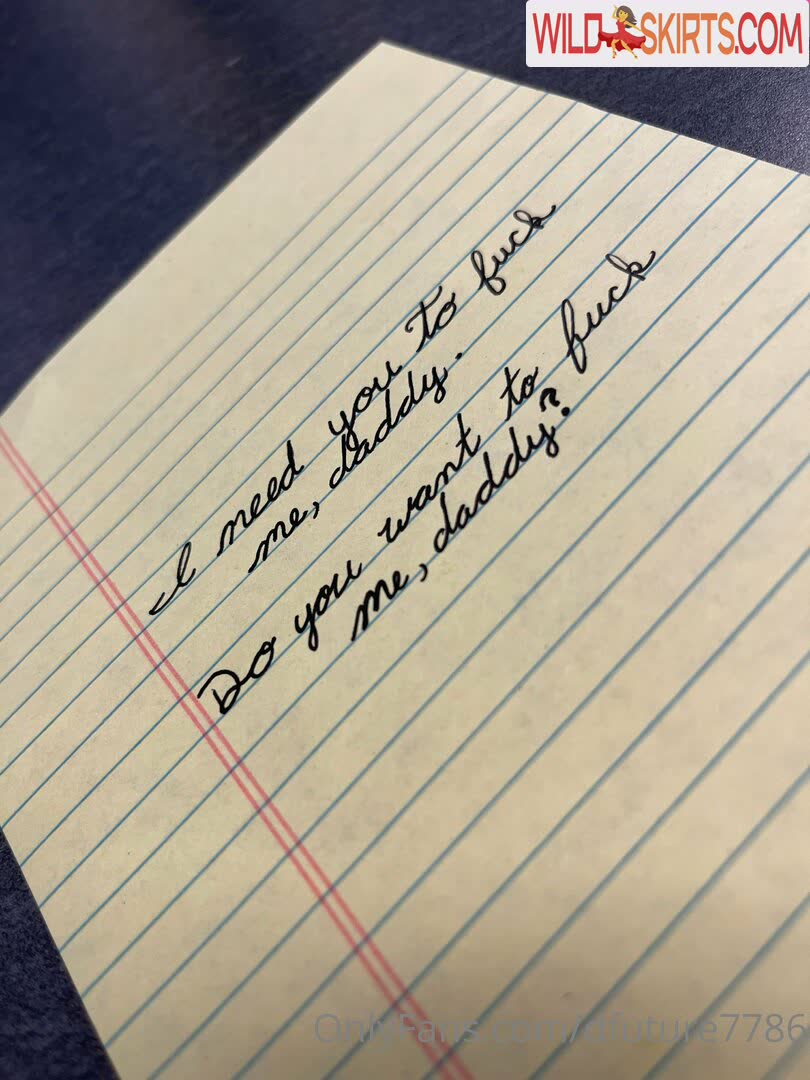 WILD SKIRTS.COM
I need you to fuck
me, daddy.
Do you want to fuck
me, daddy?
OnlyFans.com/dfuture7786